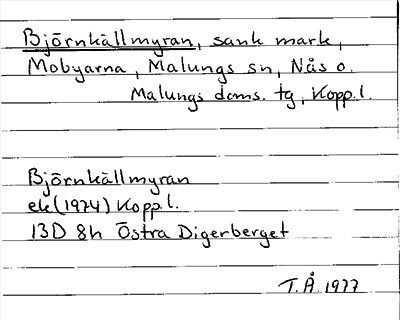 Björnkällmyran, sank mark,
Mobyarna, Malungs sn, Nås o.
Malungs doms. tg, Kopp.l.
Björnkällmyran
ek (1974) Kopp.l.
13D 8h Östra Digerberget
T.Å. 1977